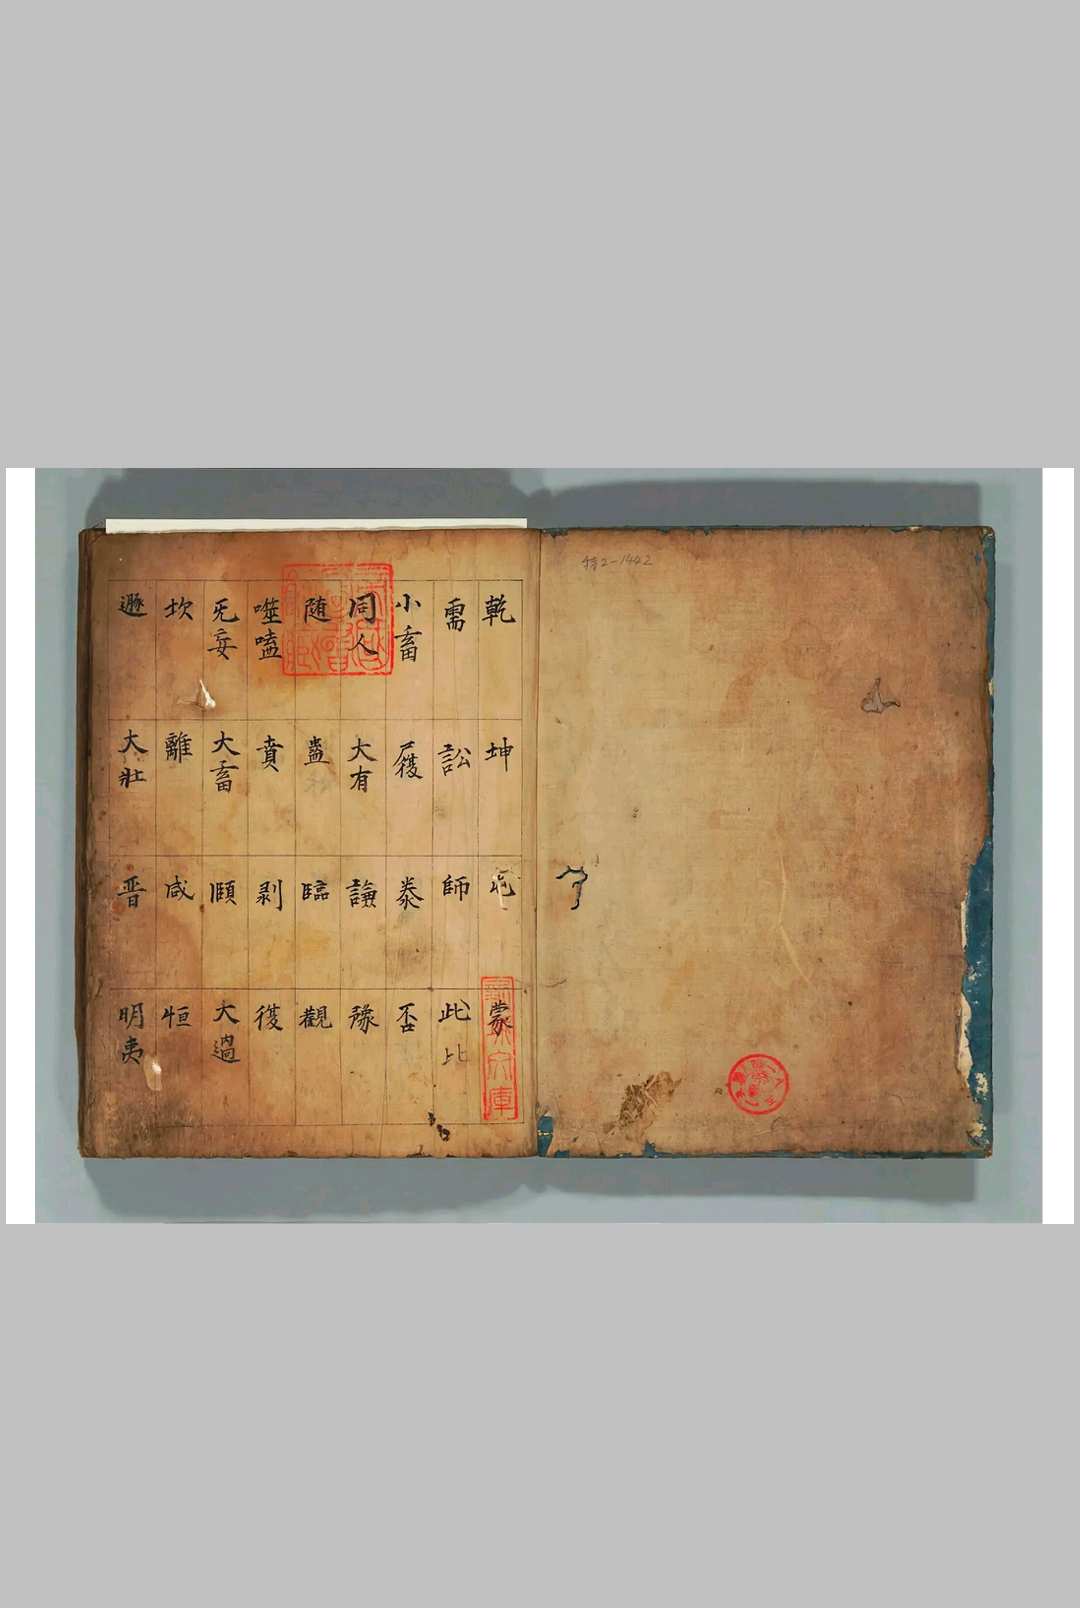 特2-1442
乾 坤 屯 蒙
需 訟 師 此 比
小畜 履 泰 否
同人 大有 謙 豫
随 蠱 臨 觀
噬嗑 賁 剥 復
旡妄 大畜 頤 大過
坎 離 咸 恒
遯 大壯 晋 明夷
文庫